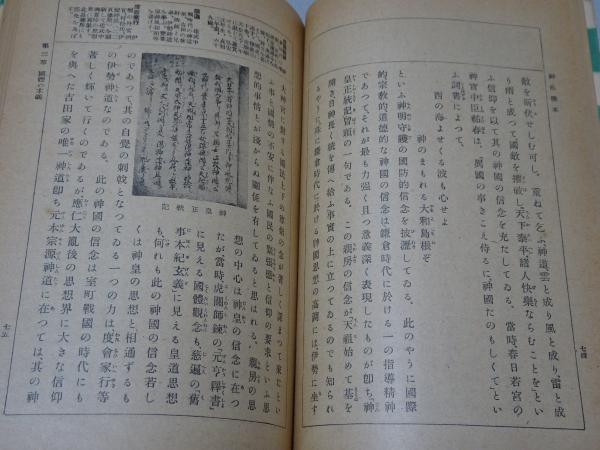 神社読本
敵を斬伏せしむ可し。重ねて乞ふ神道雲と成り風と成り、雷と成
り雨と成つて國敵を摧破し、天下泰平諸人快樂ならむことを」とい
ふ信仰を以て其の神國の信念を充たしてゐる。當時、春日若宮の
神官中臣祐春は、「異國の事きこえ侍るに神國たのもしくて」とい
ふ詞書によつて、
西の海よせくる波も心せよ
神のまもれる大和島根ぞ
といふ神明守護の國防的信念を披瀝してゐる。此のやうに國際
的宗教的道德的な神國の信念は鎌倉時代に於ける一の指導精神
であつて、それが最も力强く且つ意義深く表現したものが卽ち「神
皇正統記」冒頭の一句である。この親房の信念が「天祖始めて基を
開き日神長く統を傳へ給ふ事實の上に立つてゐるのでも知られ
るやうに、殊に鎌倉時代に於ける神國思想の高調には、伊勢に坐す
七四
大神宮に對する國民上下の崇敬の念が著しく深まつて來たとい
ふ事と國情の不安に伴なふ國民の緊張感と信仰の要求といふ思
想的事情とが淺からぬ關係を有してゐると思はれる。親房の思
想の中心は神皇の信念に在つ
たが當時虎關師錬の「元亨釋書」
に見える國體觀念も、慈遍の「舊
事本紀玄義」に見える皇道思想
も、何れも此の神國の信念若し
くは神皇の思想と相通ずるも
神皇正統記
のであつて其の自覺の刺戟となつてゐる一つの力は度會家行等
の伊勢神道なのである。此の神國の信念は室町戰國の時代にも
著しく輝いて行くのであるが應仁大亂後の思想界に大きな信仰
を與へた吉田家の唯一神道卽ち元本宗源神道に在つては、其の神
第二章 國體の本義
七五